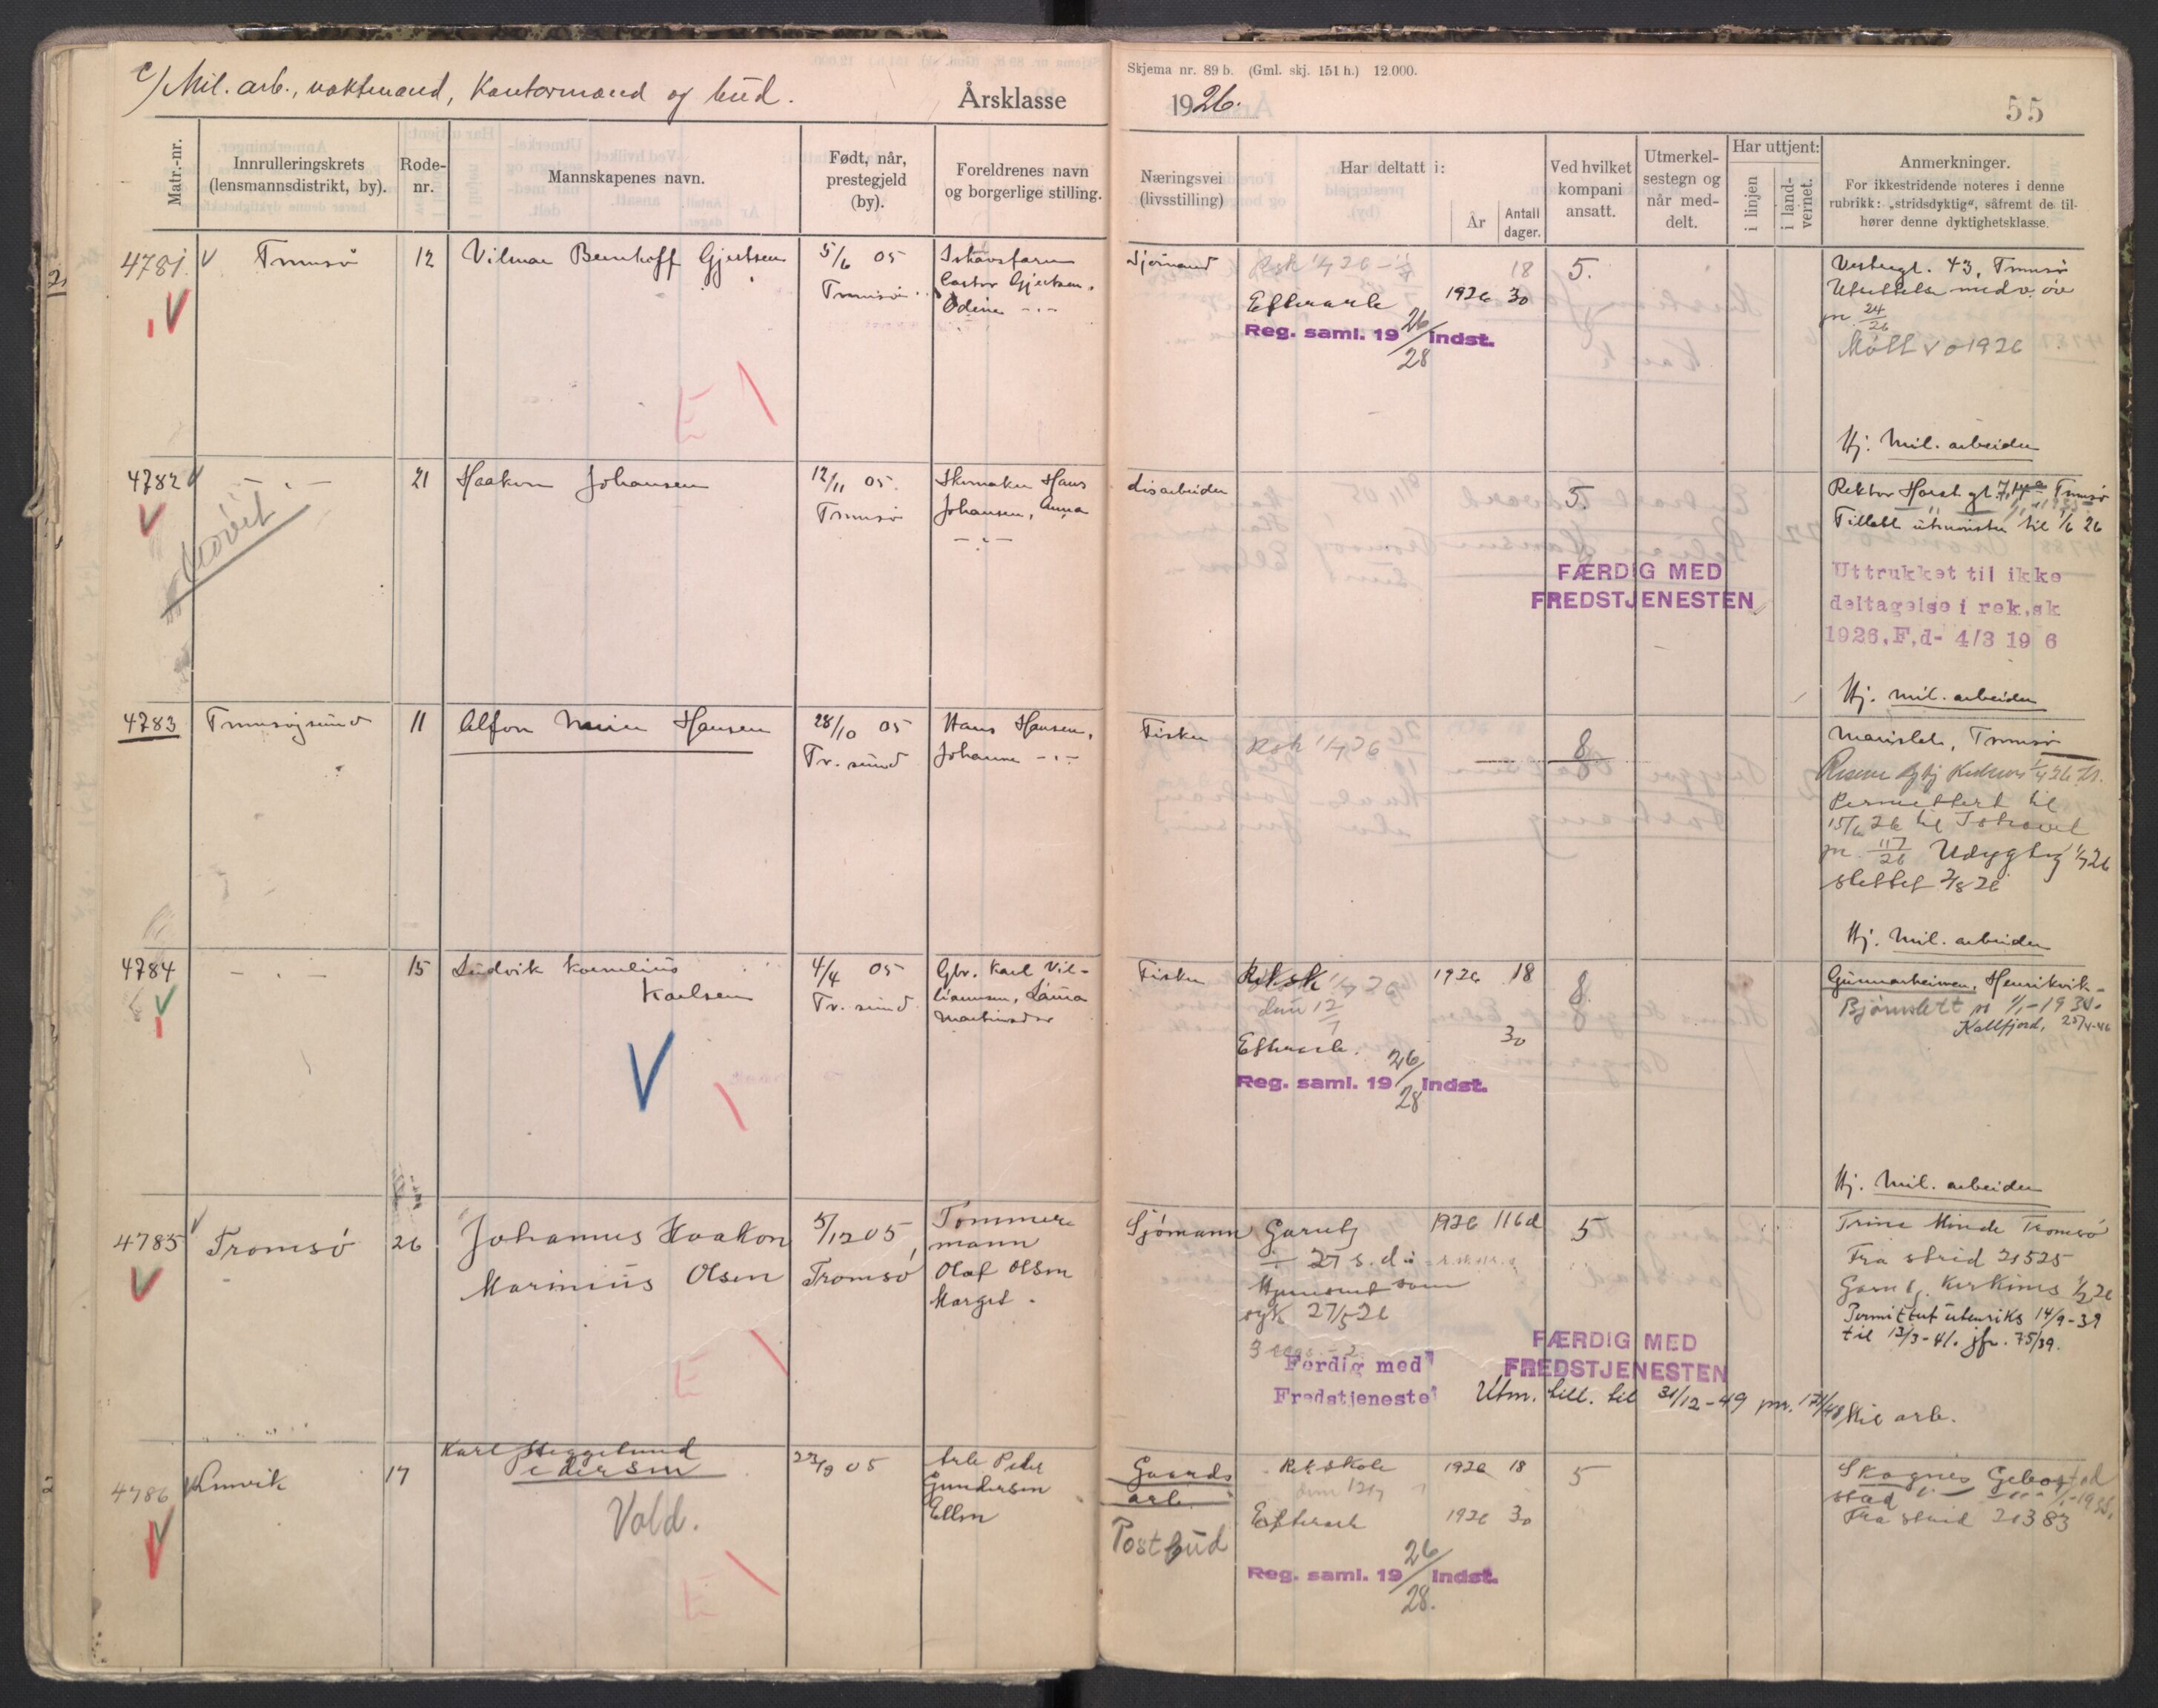 c/ Mil. arb., vaktmand, Kontormænd og bud.
Årsklasse
Skjema nr. 89 b. (Gml. skj. 151 h.) 12.000.
1926.
55
Matr.-nr.
Innrulleringskrets
(lensmannsdistrikt, by).
Rode-
nr.
Mannskapenes navn.
Født, når,
prestegjeld
(by).
Foreldrenes navn
og borgerlige stilling.
Næringsvei
(livsstilling)
Har deltatt i:
År
Antall
dager.
Ved hvilket
kompani
ansatt.
Utmerkel-
sestegn og
når med-
delt.
Har uttjent:
i linjen
i land-
vernet.
Anmerkninger.
For ikkestridende noteres i denne
rubrikk: „stridsdyktig“, såfremt de til-
hører denne dyktighetsklasse.
4781. V Tromsø 12 Vilmar Bernhoff Gjertsen
5/6 05
Tromsø
Ishavsfarer
Castor Gjertsen,
Odine -"-
Sjømand
Rsk 1/7 26
18
5.
Eftersk 1926 30
Reg. saml. 19 26/28 indst.
Vestregt. 43, Tromsø
Utsettelse med v. øv
pr 24/26
Møtt v ø 1926
V
E
Hj. Mil. arbeider
4782 V -"- 21 Haakon Johansen
12/11 05.
Tromsø
Skomaker Hans
Johansen, Anna
-"-
Løsarbeider
5.
FÆRDIG MED
FREDSTJENESTEN
Rektor Horst gt. Tromsø
Tillatt utmønstre til 1/6 26
Uttrukket til ikke
deltagelse i rek.sk
1926.F.d- 4/3 19 6
V
Hj. Mil. arbeider
4783 Tromsøysund 11 Alfon Hansen
28/10 05
Tr. sund
Hans Hansen,
Johanne -"-
Fisker
Rsk 1/7 26
8
Tromsø
Permittert til
15/6 26 til Ishavet
pr. 117/26 Udygtig 1/7 26
slettet 2/8 26
Hj. Mil. arbeider
4784 -"- 15 Ludvik Kornelius
Karlsen
4/4 05
Tr. sund
Gbr. Karl Vil-
liamsen, Laura
Martinsdtr
Fisker
Rek.sk 1926 18
8
Eftersk. 30
Reg. saml. 19 26/28 indst.
Gunnarheimen, Henrikvik-
Bjørnslett pr 1/1-1934.
Kallfjord, 25/4-46
V
V
Hj. Mil. arbeider
4785 V Tromsø 26 Johannes Haakon
Marinius Olsen
5/12 05,
Tromsø
Tømmer
mann
Olaf Olsen
Marget -
Sjømann
Garntj 1926 116 d
÷ 27 s. d.
Hjemsent som
syk 27/5 26
5
Ferdig med
Fredstjeneste
FÆRDIG MED
FREDSTJENESTEN
Utm. till. til 31/12-49 pr. 171/48
Trine Minde Tromsø
Fra strid 21525
Garn tj. Kirkenes 1/2 26
Permittert utenriks 14/9-39
til 13/3-41. jfr. 75/39.
Mil arb.
V
E
4786 17
Karl Heggelund
Pedersen
Vold.
05
Arb Peder
Gundersen
Ellen
Gaards
arb.
Postbud
Rekskole 1926 18
Eftersk 1926 30
5
Reg. saml. 19 26/28. indst.
Fra strid 21383
V
E